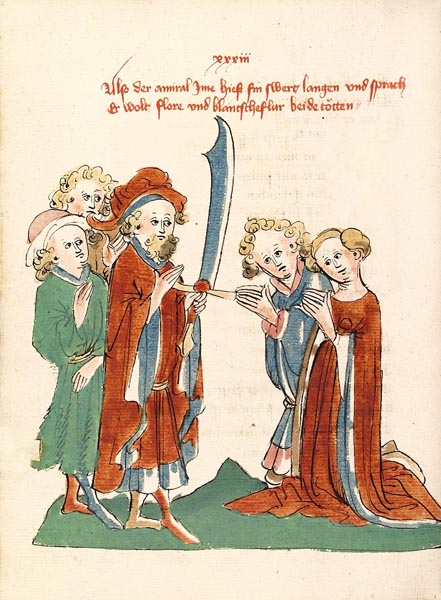 xxxiii
Also der amiral Jme hieß sin swert langen vnd sprach
Er wolt flore vnd blantscheflur beide tötten